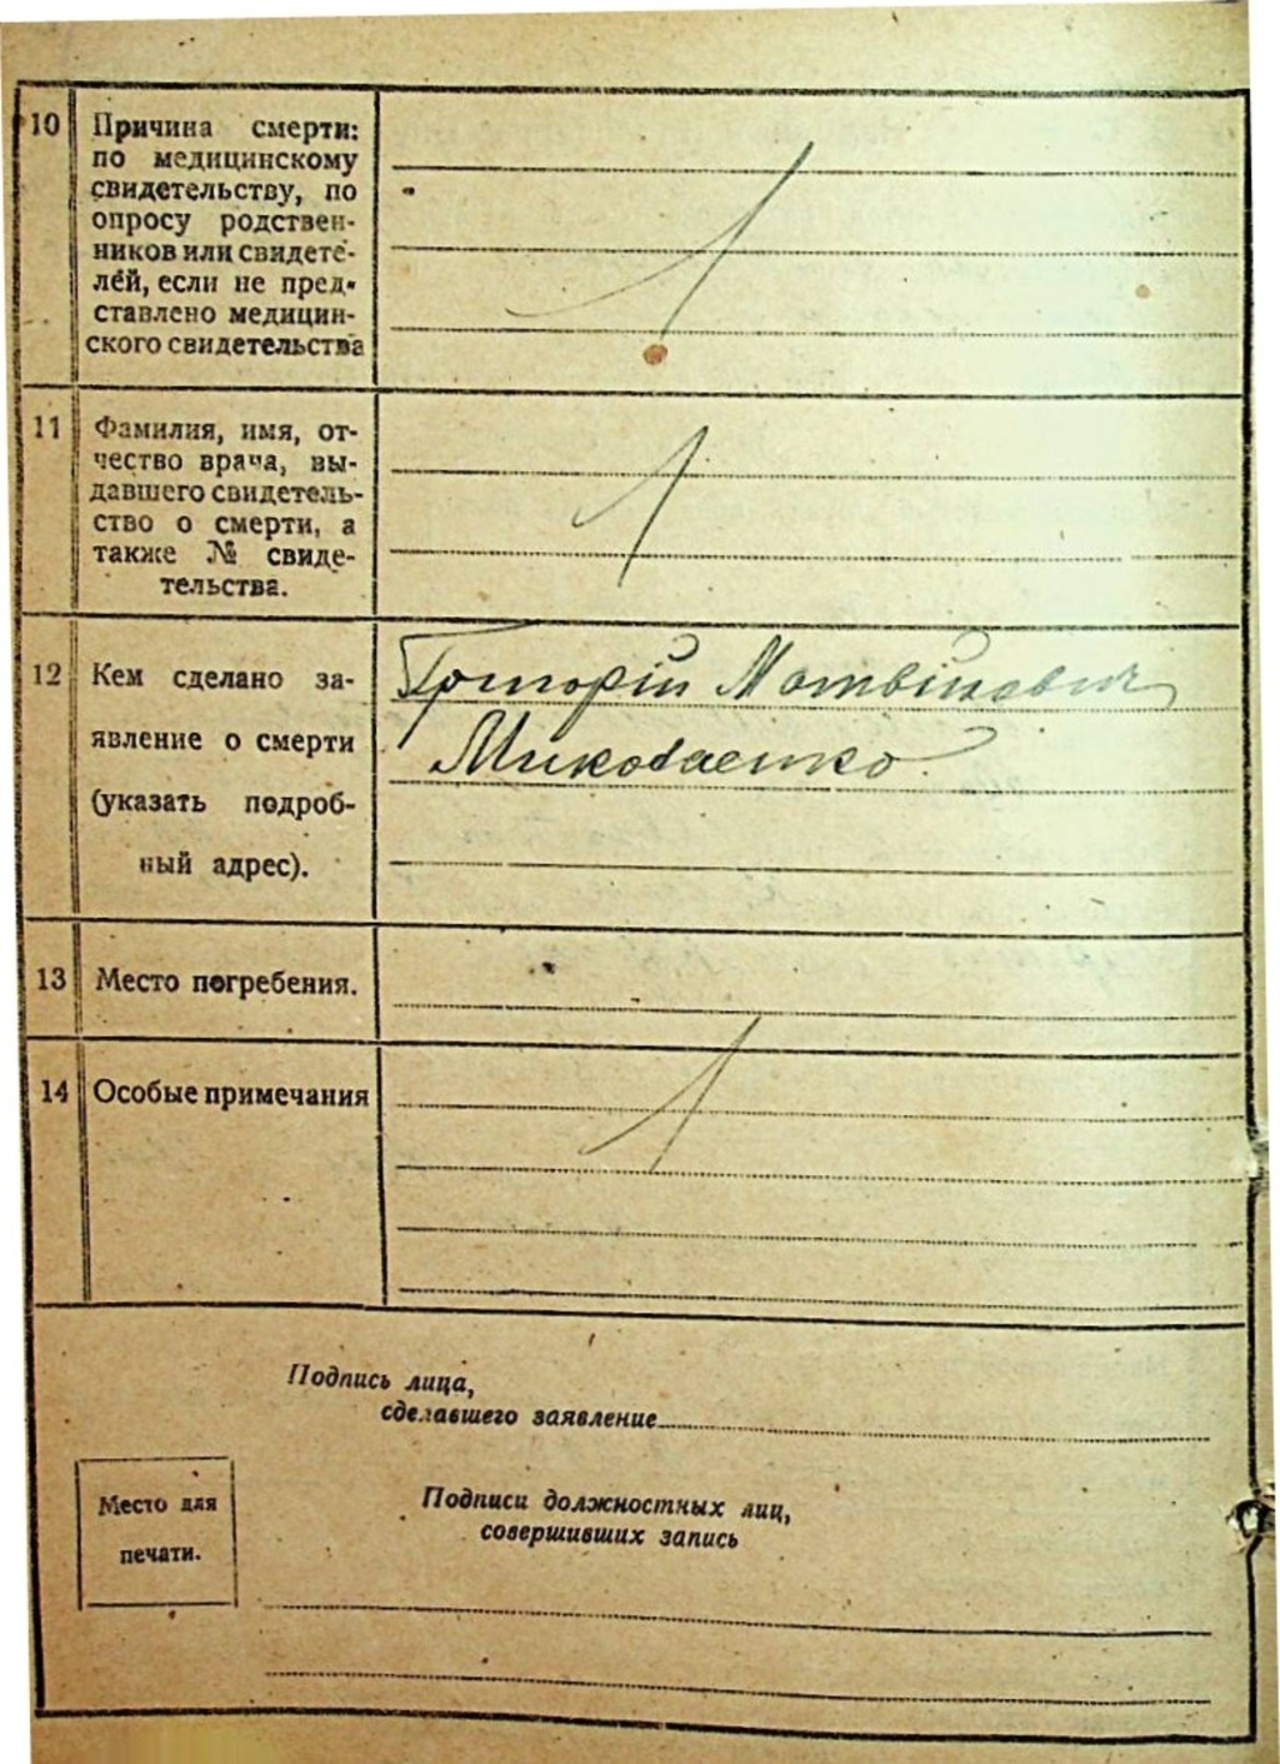 10 Причина смерти:
по медицинскому
свидетельству, по
опросу родствен-
ников или свидете-
лей, если не пред-
ставлено медицин-
ского свидетельства
11 Фамилия, имя, от-
чество врача, вы-
давшего свидетель-
ство о смерти, а
также № свиде-
тельства.
12 Кем сделано за-
явление о смерти
(указать подроб-
ный адрес).
Григорій Матвійович
Миколаенко
13 Место погребения.
14 Особые примечания
Подпись лица,
сделавшего заявление
Место для
печати.
Подписи должностных лиц,
совершивших запись